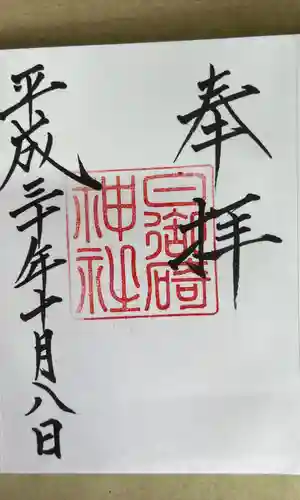 奉拝
白御碕
神社
平成三十年十月八日